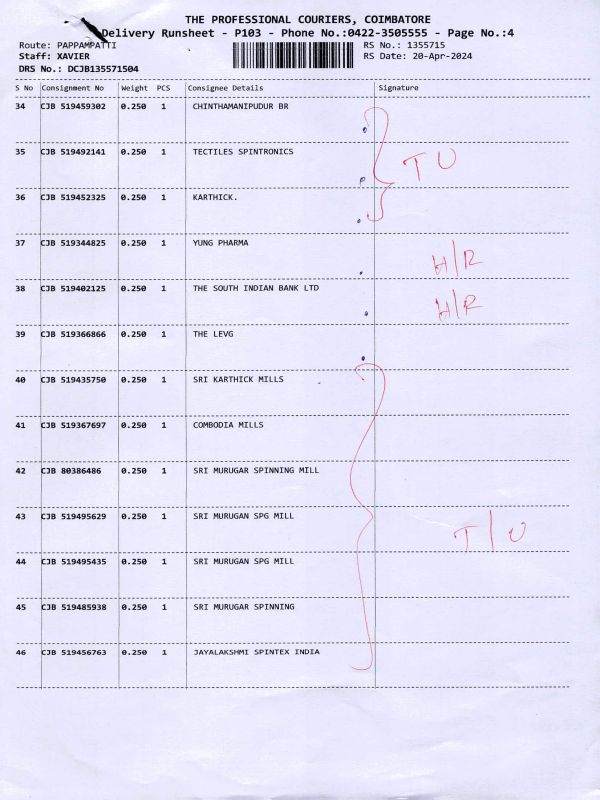 THE PROFESSIONAL COURIERS, COIMBATORE
Delivery Runsheet - P103 - Phone No.:0422-3505555 - Page No.:4
Route: PAPPAMPATTI RS No.: 1355715
Staff: XAVIER RS Date: 20-Apr-2024
DRS No.: DCJB135571504
S No Consignment No Weight PCS Consignee Details Signature
34 CJB 519459302 0.250 1 CHINTHAMANIPUDUR BR
35 CJB 519492141 0.250 1 TECTILES SPINTRONICS T U
36 CJB 519452325 0.250 1 KARTHICK.
37 CJB 519344825 0.250 1 YUNG PHARMA H/R
38 CJB 519402125 0.250 1 THE SOUTH INDIAN BANK LTD H/R
39 CJB 519366866 0.250 1 THE LEVG
40 CJB 519435750 0.250 1 SRI KARTHICK MILLS
41 CJB 519367697 0.250 1 COMBODIA MILLS
42 CJB 80386486 0.250 1 SRI MURUGAR SPINNING MILL
43 CJB 519495629 0.250 1 SRI MURUGAN SPG MILL T/U
44 CJB 519495435 0.250 1 SRI MURUGAN SPG MILL
45 CJB 519485938 0.250 1 SRI MURUGAR SPINNING
46 CJB 519456763 0.250 1 JAYALAKSHMI SPINTEX INDIA